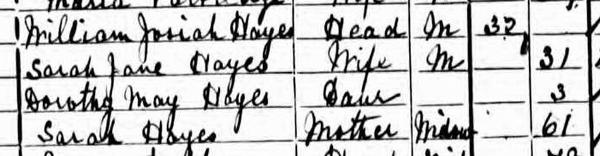 William Josiah Hayes Head M 32
Sarah Jane Hayes Wife M 31
Dorothy May Hayes Daur 3
Sarah Hayes Mother Widow 61